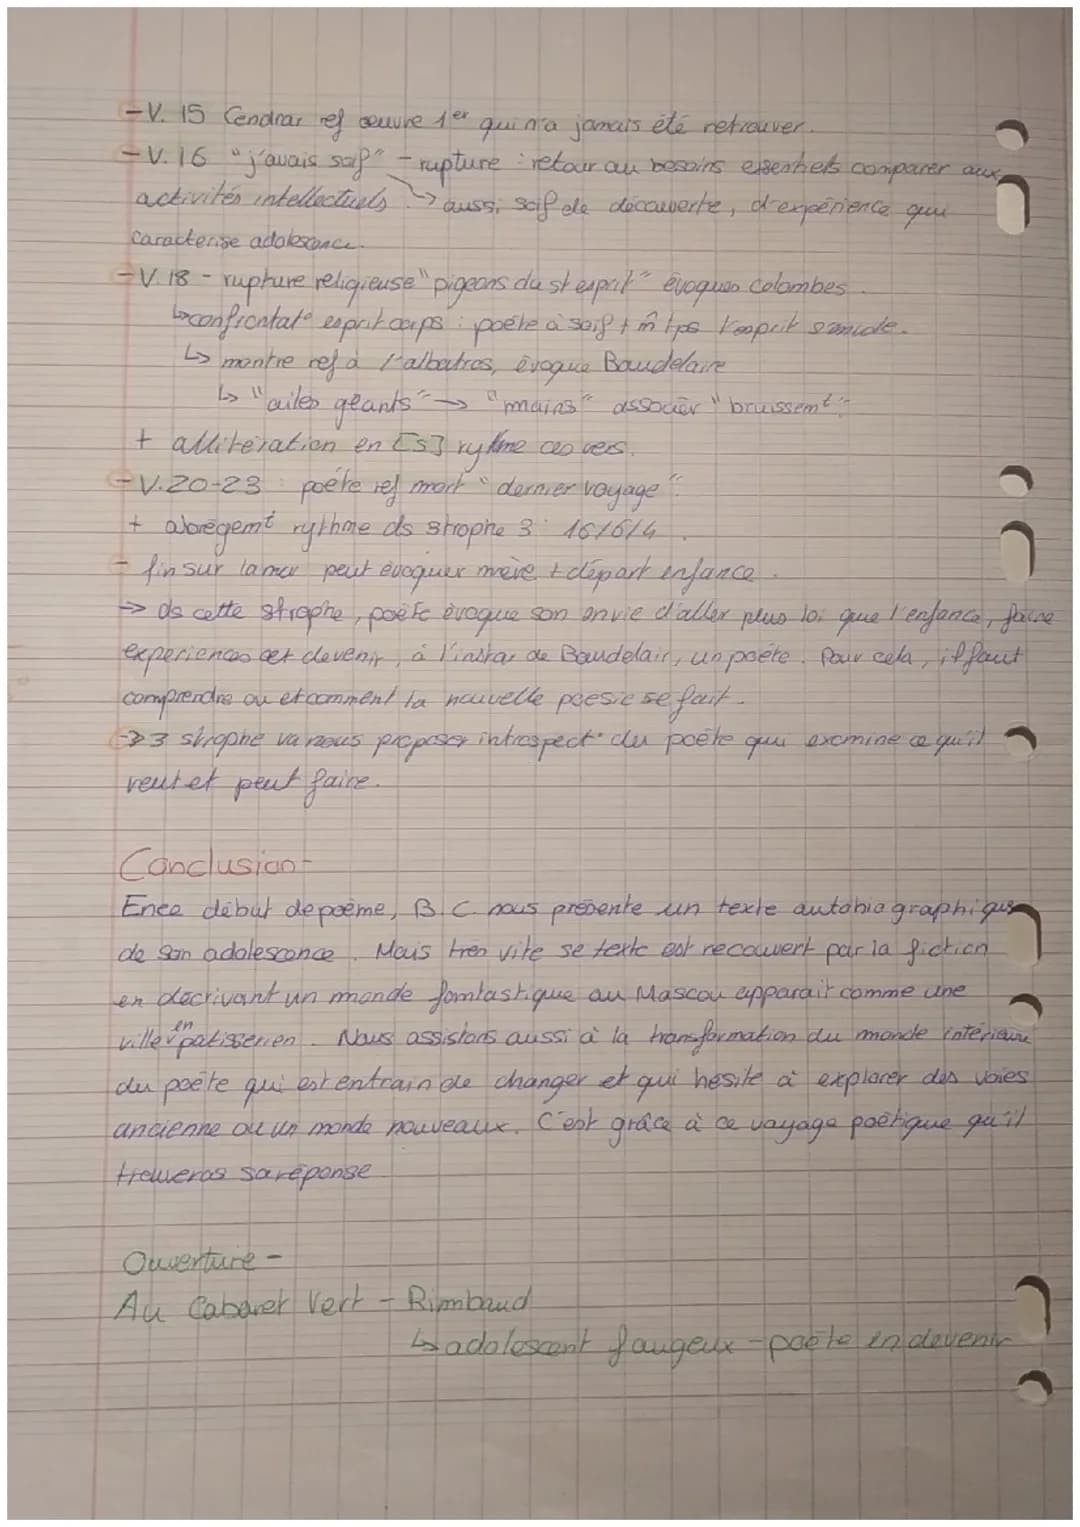 -V. 15 Cendrar ref œuvre 1er qui n'a jamais été retrouver.
-V. 16 "j'avais soif" - rupture : retour au besoins essentiels comparer aux
activités intellectuels. → aussi soif de découverte, d'expérience qui
caracterise adolescence.
-V. 18 - rupture religieuse "pigeons du st esprit" évoques colombes.
↳ confrontat° esprit corps : poète a soif + m̂ tps l'esprit
↳ montre ref à l'albatros, évoque Baudelaire
↳ "ailes géants" → "mains" associer "bruissemt".
+ allitération en [s] rytme ces vers.
-V.20-23 : poète ref mort "dernier voyage".
+ abrégemt rythme ds strophe 3 : 16/6/4.
- fin sur la mer peut évoquer mère + départ enfance.
→ ds cette strophe, poète évoque son envie d'aller plus loi que l'enfance, faire
experiences et devenir, à l'instar de Baudelair, un poète. Pour cela, il faut
comprendre ou et comment la nouvelle poesie se fait.
→ 3 strophe va nous proposer introspect° du poète qui examine ce qu'il
veut et peut faire.
Conclusion -
En ce début de poème, B.C. nous présente un texte autobiographique
de son adolescence. Mais très vite se texte est recouvert par la fiction
en décrivant un monde fomtastique ou Moscou apparait comme une
ville en patisserien. Nous assistons aussi à la transformation du monde intérieure
du poète qui est entrain de changer et qui hesite à explorer des voies
ancienne ou un monde nouveaux. C'est grâce à ce voyage poètique qu'il
trouveras sa réponse
Ouverture -
Au Cabaret Vert - Rimbaud
↳ adolescent fougeux - poète en devenir